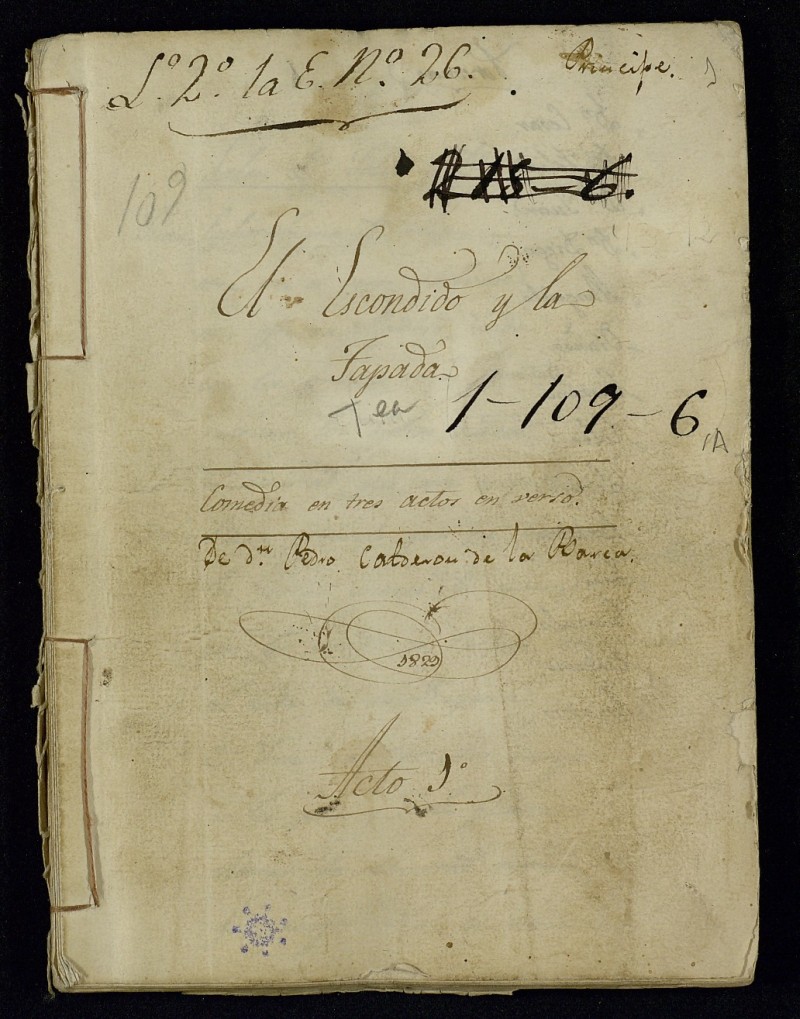 Lº 2º la E. Nº 26.
Principe.
109
El Escondido y la
Tapada.
1-109-6
Comedia en tres actos en verso.
De dn Pedro Calderon de la Barca.
Acto 1º